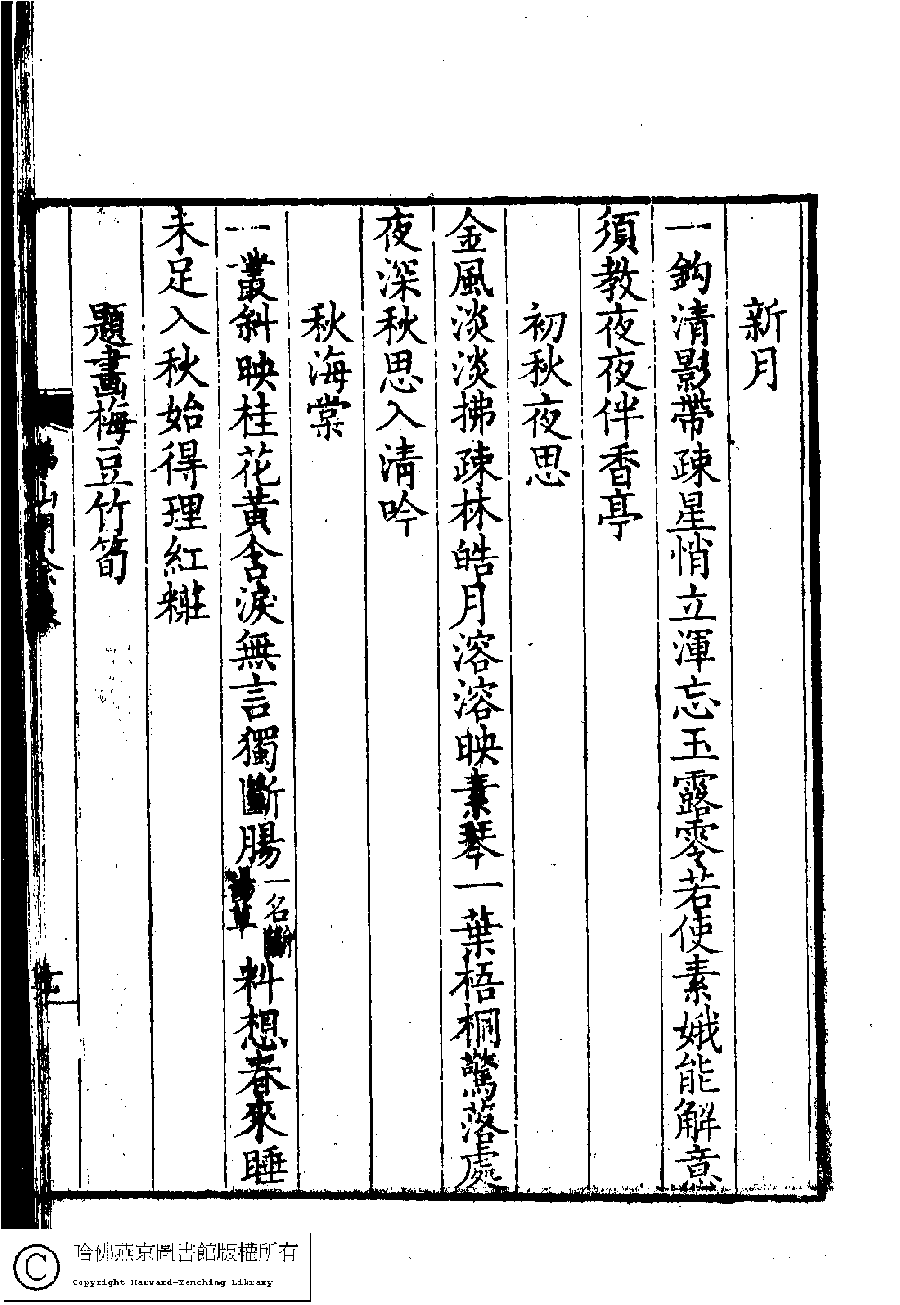 新月
一鈎清影帶疎星悄立渾忘玉露零若使素娥能解意
須教夜夜伴香亭
初秋夜思
金風淡淡拂疎林皓月溶溶映素琴一葉梧桐驚落處
夜深秋思入清吟
秋海棠
一叢斜映桂花黃含淚無言獨斷腸一名斷腸草料想春來睡
未足入秋始得理紅糚
題畫梅豆竹筍
哈佛燕京圖書館版權所有
Copyright Harvard-Yenching Library